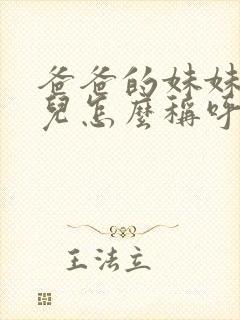 爸爸的妹妹
兒怎麼稱呼
王法立